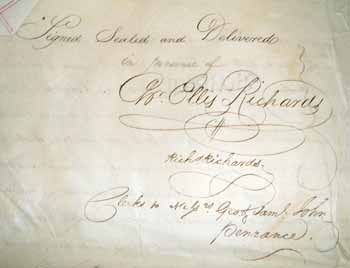 Signed Sealed and Delivered
in presence of
Wm. Ellis Richards
Richd Richards
Clerks to Messrs Geo & Saml. John
Penzance.